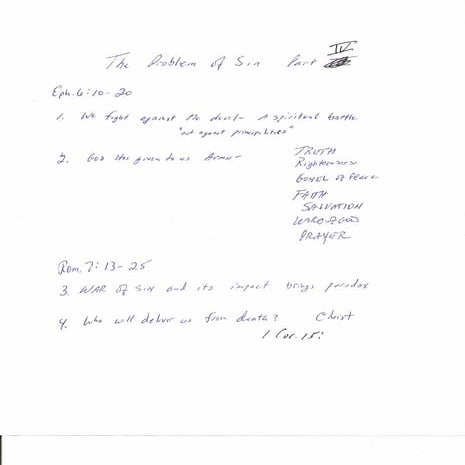 The Problem of Sin Part IV
Eph. 6:10-20
1. We fight against the devil - A spiritual battle
"but against principalities"
2. God Has given to us Armor - TRUTH
Righteousness
GOSPEL of Peace
FAITH
SALVATION
WORD of GOD
PRAYER
Rom. 7:13-25
3. WAR of Sin and its impact brings paradox
4. Who will deliver us from death? Christ
1 Cor. 15: